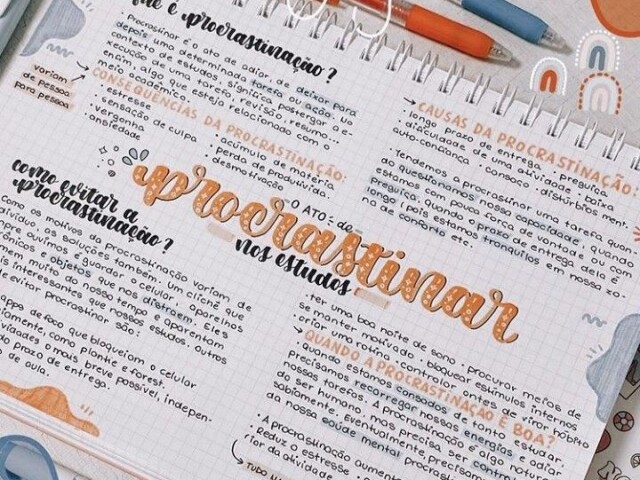 que é procrastinação?
• Procrastinar é o ato de adiar, de deixar para
depois uma determinada tarefa ou ação. Ua
contexto de estudos, significa postergar a e-
xecução de uma tarefa, revisão, resumo...
enfim, algo que esteja relacionado com o
meio acadêmico.
variam
de pessoa
para pessoa
CONSEQUÊNCIAS DA PROCRASTINAÇÃO:
• estresse
• sensação de culpa
• vergonha
• ansiedade
• acúmulo de matéria
• perda de produtivida.
• desmotivação
CAUSAS DA PROCRASTINAÇÃO
• longo prazo de entrega • preguiça
• dificuldade de uma atividade • baixa
auto-confiança • cansaço • distúrbios men.
• Tendemos a procrastinar uma tarefa quan.
do questionamos nossa capacidade, quando
estamos com pouca força de vontade ou com
preguiça, quando o prazo de entrega dela é
longo (pois estamos tranquilos em nossa zo.
na de conforto etc.
- O ATO - de -
procrastinar
nos estudos
como evitar a
procrastinação?
como os motivos da procrastinação variam de
divíduo, as soluções também. Um clichê que
mpre ouvimos é guardar o celular, aparelhos
rônicos e objetos que nos distraem. Eles
mem muito do nosso tempo e aparentam
is interessantes que nossos estudos. Outros
de evitar procrastinar são:
apps de foco que bloqueiam o celular
riamente, como plantie e forest.
vidades o mais breve possível, indepen.
do prazo de entrega.
de aula.
• ter uma boa noite de sono • procurar meios de
se manter motivado • bloquear estímulos internos
• criar uma rotina • controlar antes de virar hábito
QUANDO A PROCRASTINAÇÃO É BOA?
• quando estamos cansados de tanto estudar,
precisamos recarregar nossas energias e adiar
nossas tarefas. A procrastinação é algo natural
do ser humano, mas precisa ser controlada
sabiamente. Eventualmente, precisamos
da nossa
• A procrastinação aumen
• Reduz o estresse
rior da atividade
TUDO